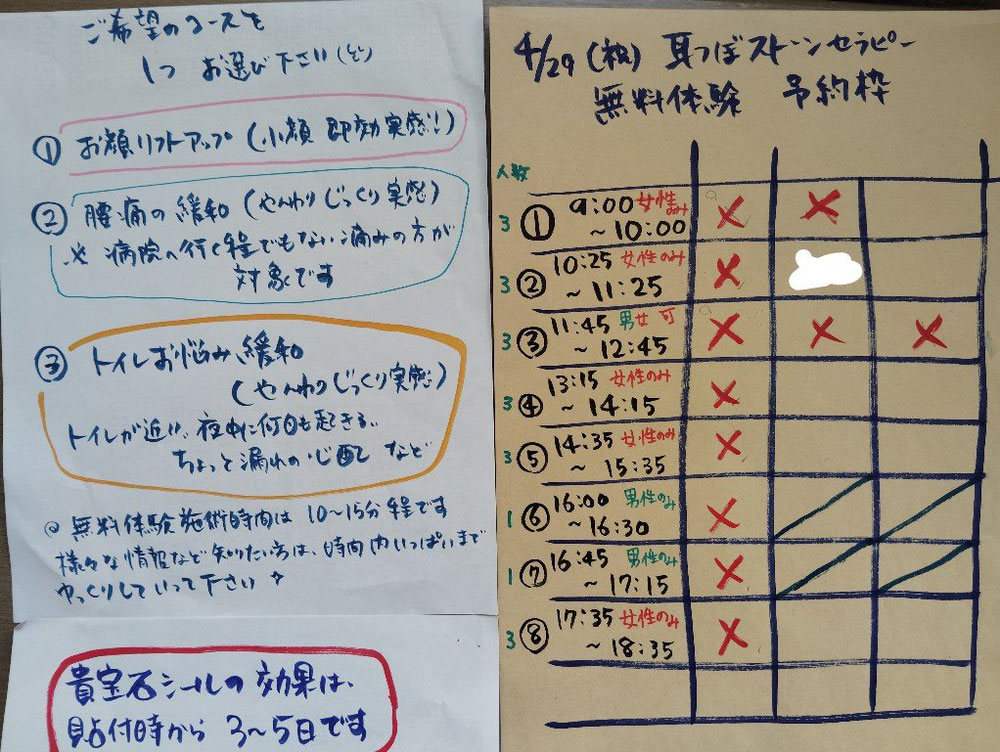 ご希望のコースを
1つ お選び下さい
① お顔リフトアップ (小顔 即効実感!!)
② 腰痛の緩和 (やんわりじっくり実感)
※ 病院へ行く程でもない痛みの方が
対象です
③ トイレお悩み緩和
(やんわりじっくり実感)
トイレが近い、夜中に何回も起きる、
ちょっと漏れの心配 など
◎ 無料体験施術時間は 10〜15分程です
様々な情報など知りたい方は、時間内いっぱいまで
ゆっくりしていって下さい
貴宝石シールの効果は、
貼付時から 3〜5日です
4/29 (祝) 耳つぼストーンセラピー
無料体験 予約枠
人数
3 ① 9:00 女性のみ × ×
〜10:00
3 ② 10:25 女性のみ ×
〜11:25
3 ③ 11:45 男女可 × × ×
〜12:45
3 ④ 13:15 女性のみ ×
〜14:15
3 ⑤ 14:35 女性のみ ×
〜15:35
1 ⑥ 16:00 男性のみ ×
〜16:30
1 ⑦ 16:45 男性のみ ×
〜17:15
3 ⑧ 17:35 女性のみ ×
〜18:35